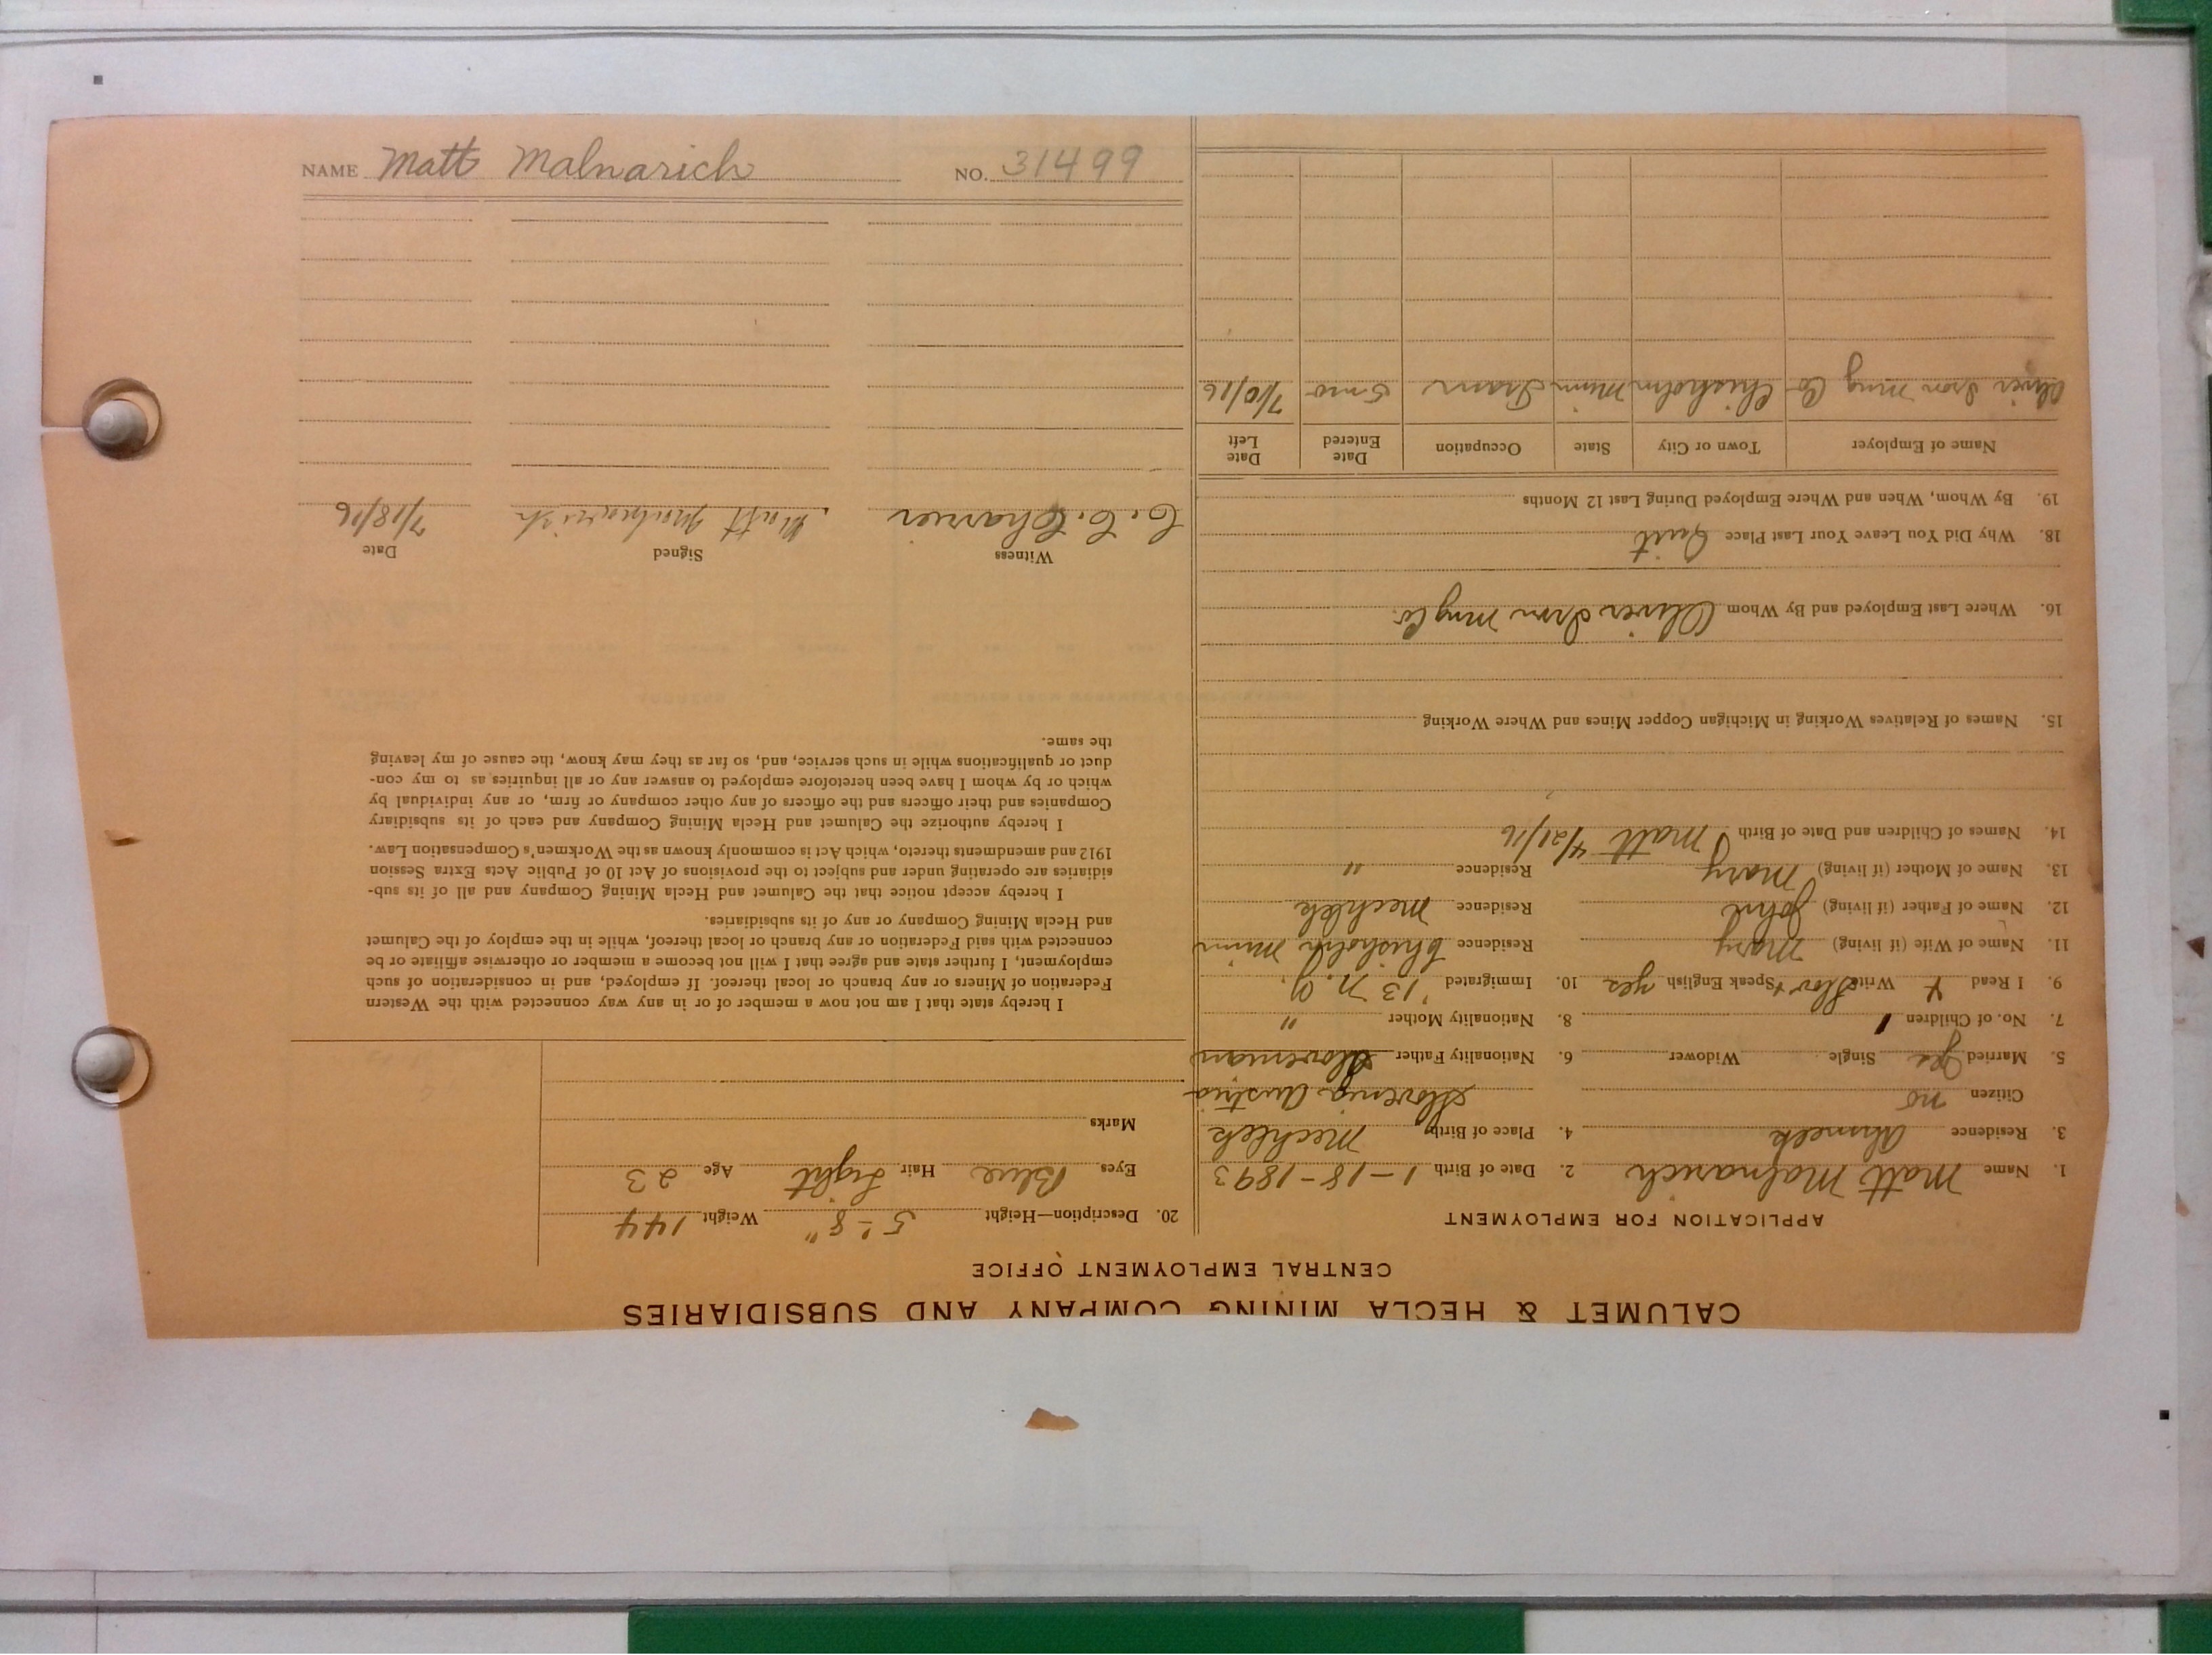 CALUMET & HECLA MINING COMPANY AND SUBSIDIARIES
CENTRAL EMPLOYMENT OFFICE
APPLICATION FOR EMPLOYMENT
1. Name Matt Malnarich 2. Date of Birth 1-18-1893
3. Residence Ahmeek 4. Place of Birth Mechlek
Citizen no Slovenia Austria
5. Married yes Single Widower 6. Nationality Father Slovenian
7. No. of Children 1 8. Nationality Mother "
9. I Read + Write Slov + Speak English yes 10. Immigrated '13 N.Y.
11. Name of Wife (if living) Mary Residence Chisholm Minn
12. Name of Father (if living) John Residence Mechlek
13. Name of Mother (if living) Mary Residence "
14. Names of Children and Date of Birth Matt 4/21/16
15. Names of Relatives Working in Michigan Copper Mines and Where Working
16. Where Last Employed and By Whom Oliver Iron Mng Co.
18. Why Did You Leave Your Last Place Quit
19. By Whom, When and Where Employed During Last 12 Months
Name of Employer Town or City State Occupation Date Entered Date Left
Oliver Iron Mng Co Chisholm Minn Tram 5 mo 7/10/16
20. Description—Height 5'-8" Weight 144
Eyes Blue Hair Light Age 23
Marks
I hereby state that I am not now a member of or in any way connected with the Western
Federation of Miners or any branch or local thereof. If employed, and in consideration of such
employment, I further state and agree that I will not become a member or otherwise affiliate or be
connected with said Federation or any branch or local thereof, while in the employ of the Calumet
and Hecla Mining Company or any of its subsidiaries.
I hereby accept notice that the Calumet and Hecla Mining Company and all of its sub-
sidiaries are operating under and subject to the provisions of Act 10 of Public Acts Extra Session
1912 and amendments thereto, which Act is commonly known as the Workmen's Compensation Law.
I hereby authorize the Calumet and Hecla Mining Company and each of its subsidiary
Companies and their officers and the officers of any other company or firm, or any individual by
which or by whom I have been heretofore employed to answer any or all inquiries as to my con-
duct or qualifications while in such service, and, so far as they may know, the cause of my leaving
the same.
Witness Signed Date
C. C. Charrier Matt Malnarich 7/18/16
NAME Matt Malnarich NO. 31499